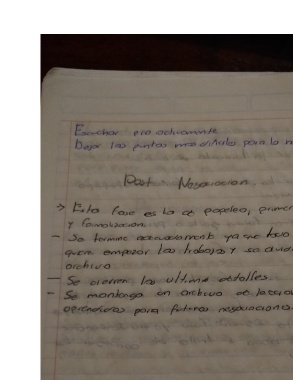 Escuchar pro activamente
Dejar los puntos mas dificiles para la
Post - Negociacion
> Esta fase es la de papeleo, primer
y formalizacion.
- Se termine adecuadamente ya que
quiere empezar los trabajos y se
archivo
- Se cierren los ultimos detalles.
- Se mantenga un archivo de
aprendidas para futuras negociaciones